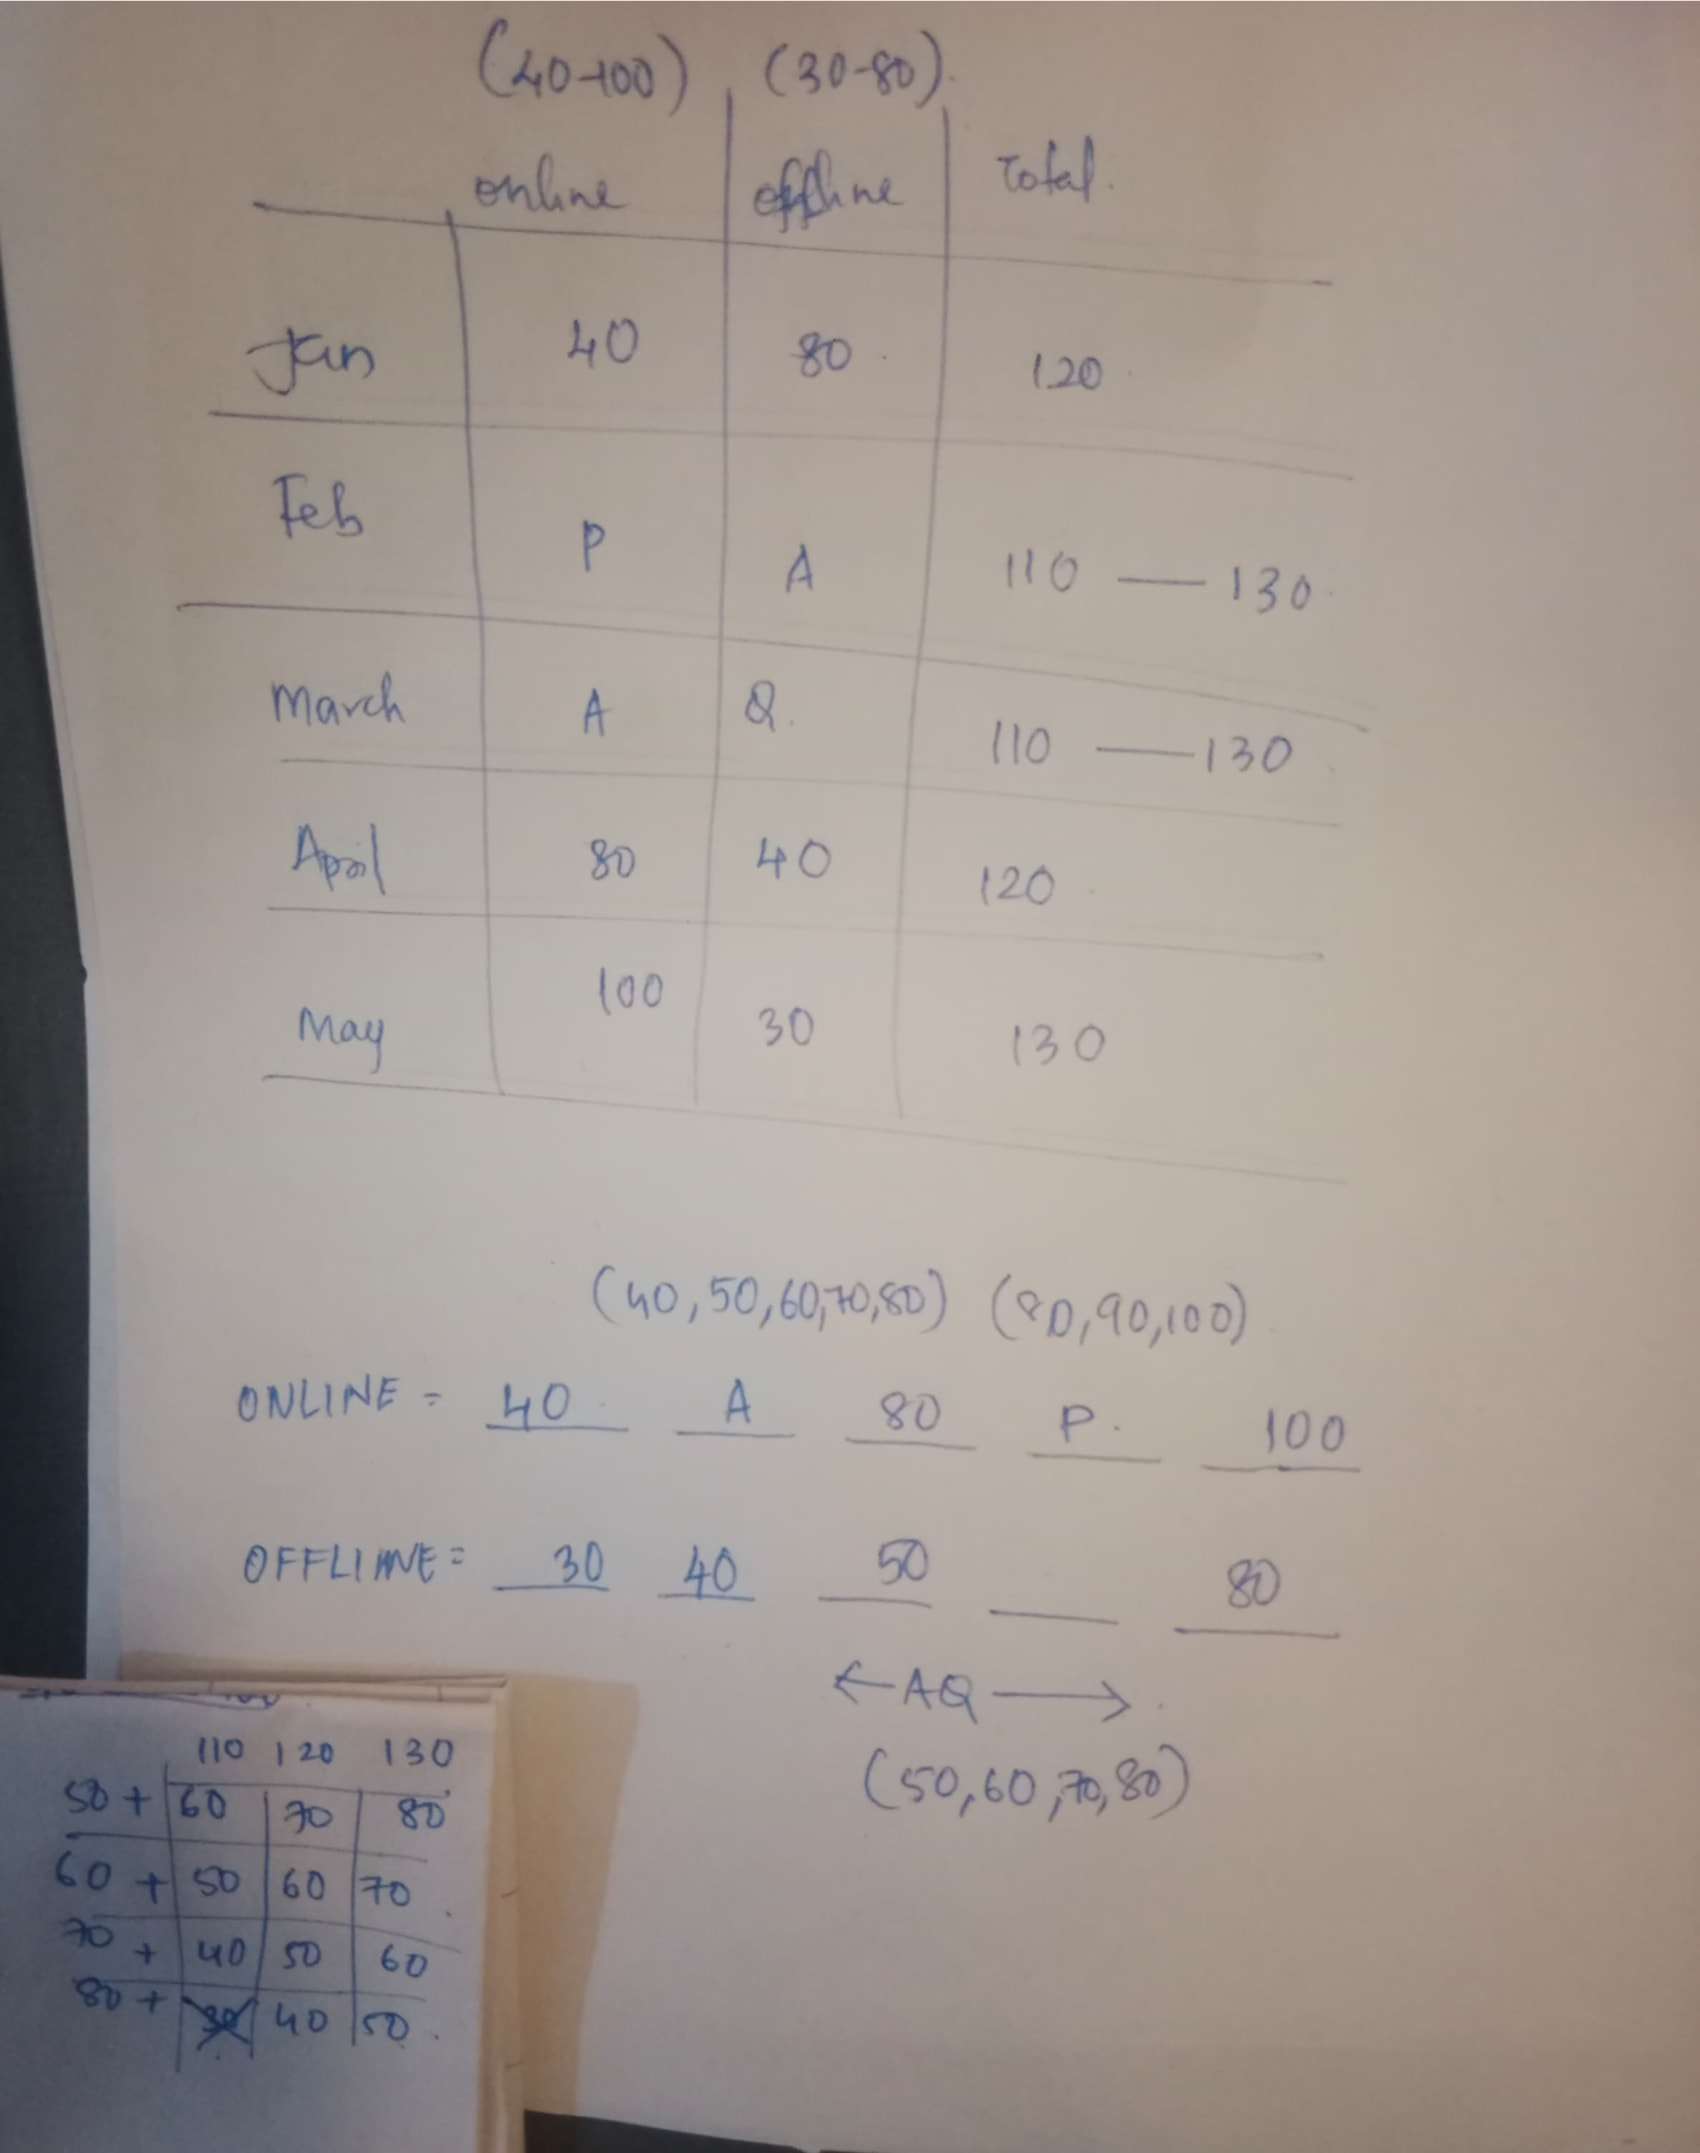 (40-100) (30-80)
online offline Total.
Jan 40 80 120
Feb P A 110 — 130
March A Q. 110 — 130
April 80 40 120
May 100 30 130
(40,50,60,70,80) (80,90,100)
ONLINE = 40 A 80 P. 100
OFFLINE = 30 40 50 80
← AQ →
(50,60,70,80)
110 120 130
50 + 60 70 80
60 + 50 60 70
70 + 40 50 60
80 + 40 50